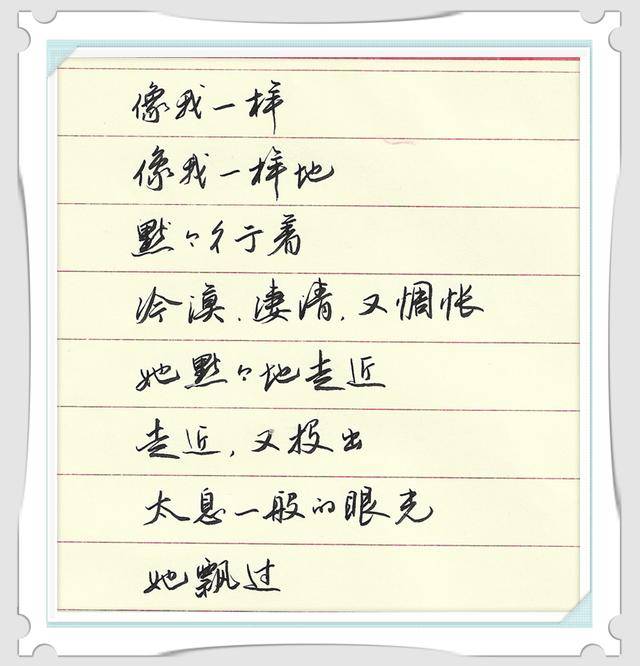 像我一样
像我一样地
默々彳亍着
冷漠、淒清，又惆怅
她默々地走近
走近，又投出
太息一般的眼光
她飘过